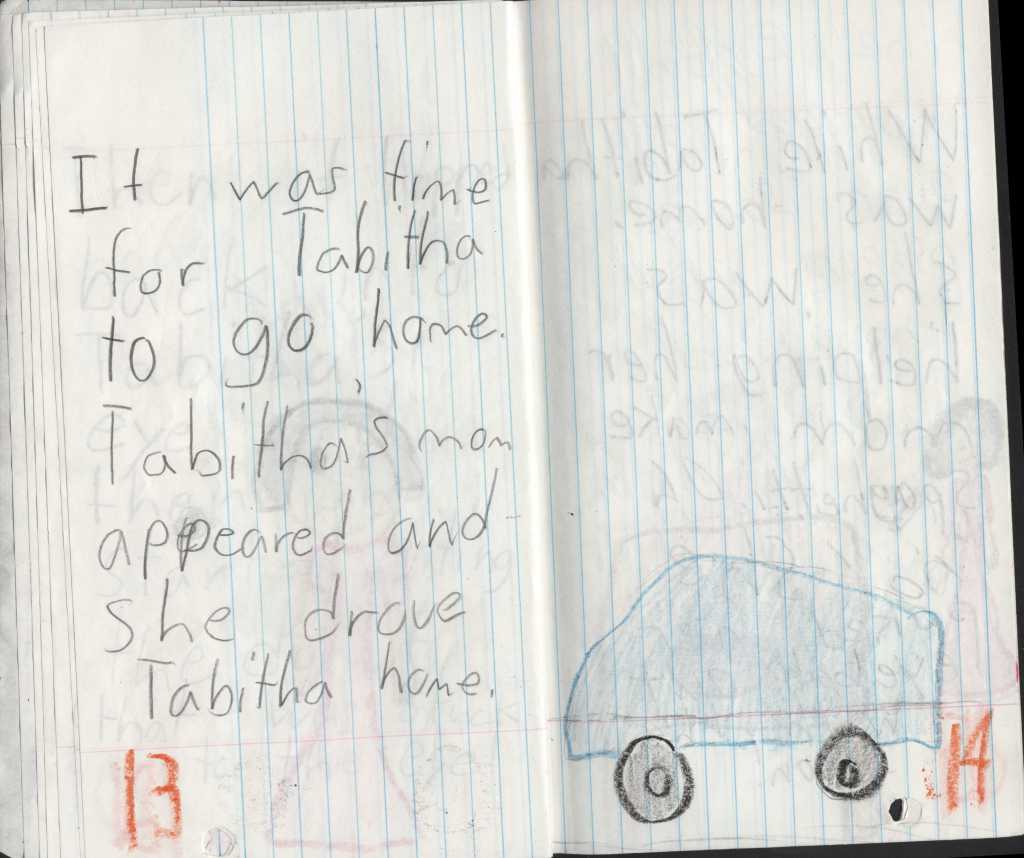 It was time
for Tabitha
to go home.
Tabitha's mom
appeared and
she drove
Tabitha home.
13
14